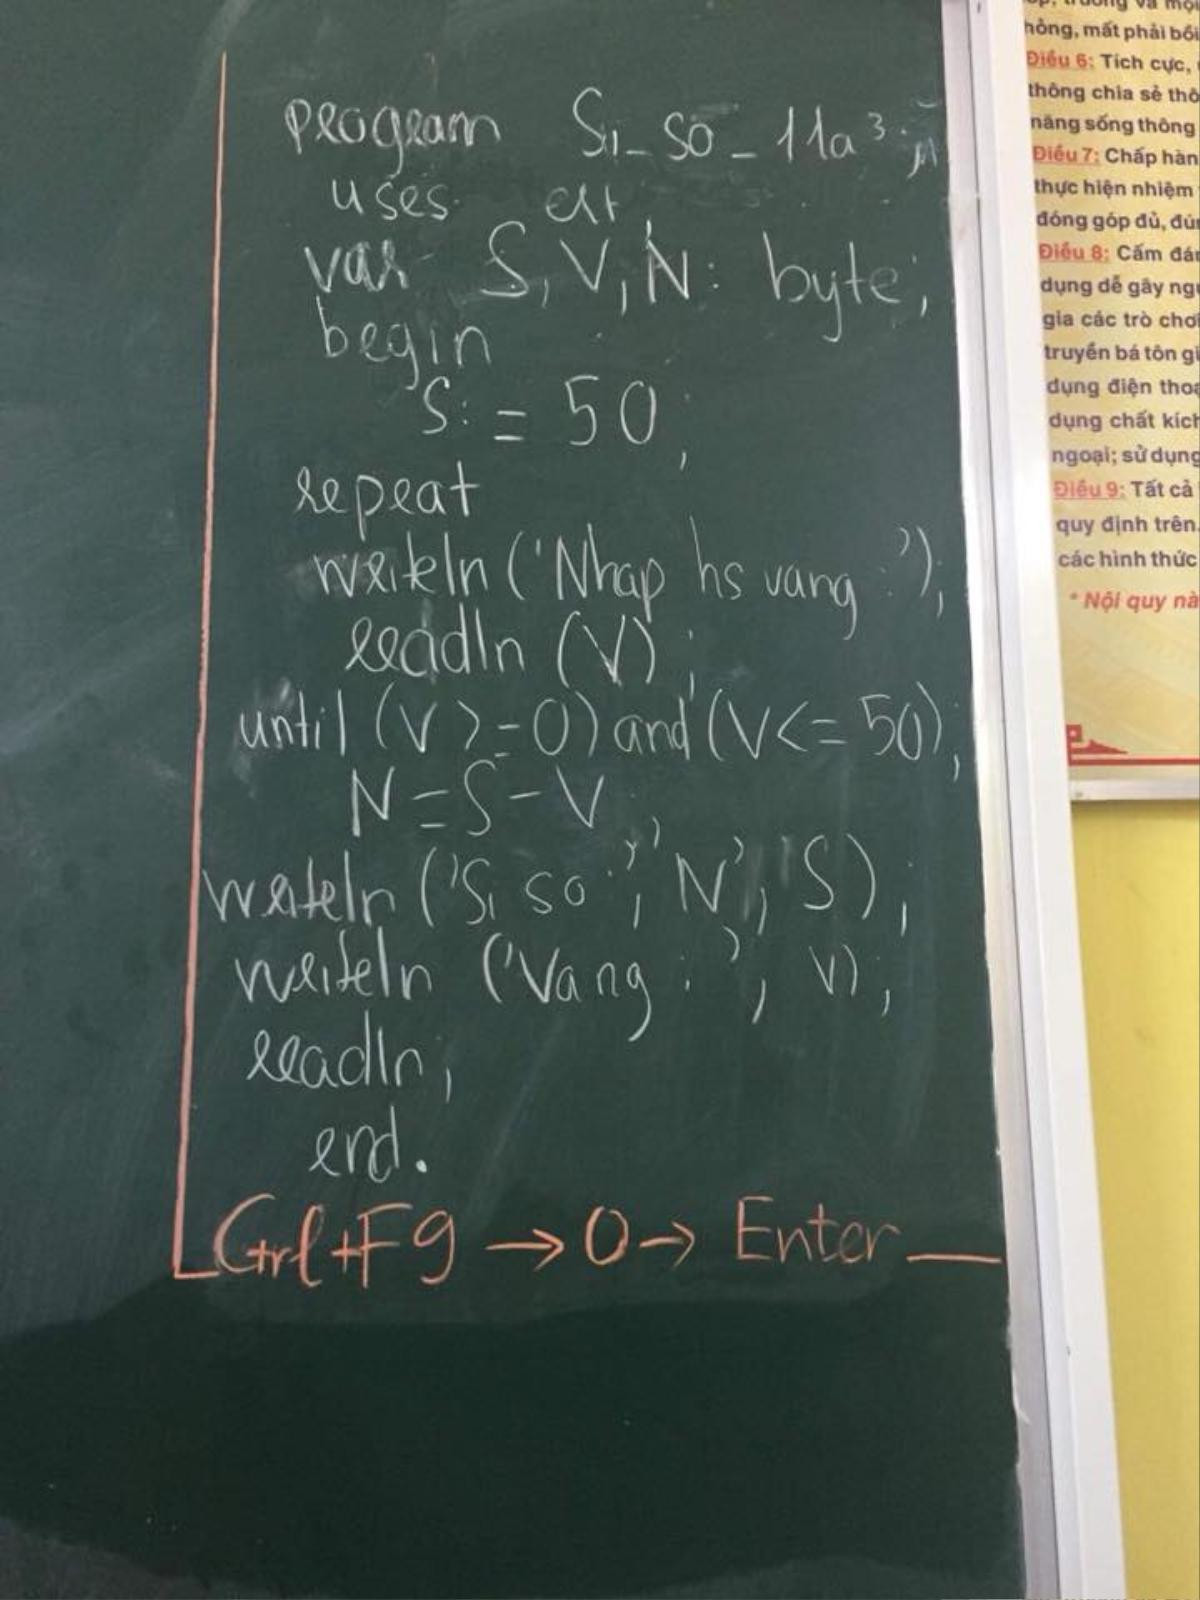 program Si_so_11a3;
uses crt;
var S, V, N: byte;
begin
S:=50;
repeat
writeln('Nhap hs vang:');
readln(V);
until (V>=0) and (V<=50);
N=S-V;
writeln('Si so:', N, '/', S);
writeln('Vang:', V);
readln;
end.
Ctrl+F9 → 0 → Enter
hỏng, mất phải bồi
Điều 6: Tích cực,
thông chia sẻ thô
năng sống thông
Điều 7: Chấp hàn
thực hiện nhiệm
đóng góp đủ, đún
Điều 8: Cấm đán
dụng dễ gây ngu
gia các trò chơi
truyền bá tôn gi
dụng điện thoạ
dụng chất kích
ngoại; sử dụng
Điều 9: Tất cả
quy định trên.
các hình thức
* Nội quy nà